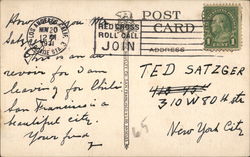 How are you Mr.
Satzger
This is an au
revoir for I am
leaving for Chili
San Francisco is a
beautiful city.
Your friend
LOS ANGELES, CALIF.
NOV 20
12 PM
1931
RED CROSS
ROLL CALL
JOIN
POST
CARD
ADDRESS
TED SATZGER
310 W 80th St.
New York City
65